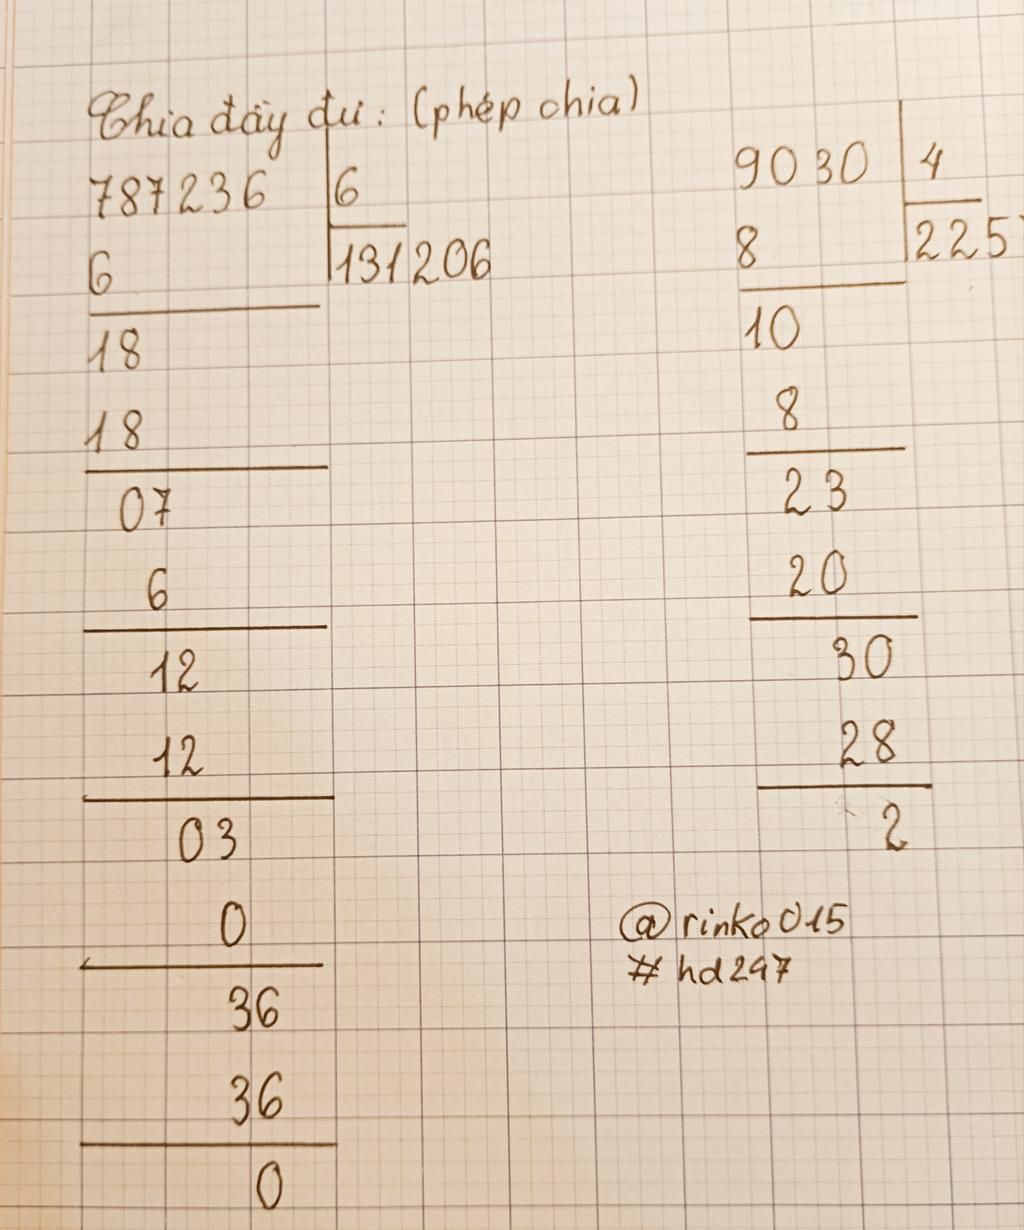 Chia đầy đủ: (phép chia)
787236 6
6 131206
18
18
07
6
12
12
03
0
36
36
0
9030 4
8 225
10
8
23
20
30
28
2
@rinko015
#hd297